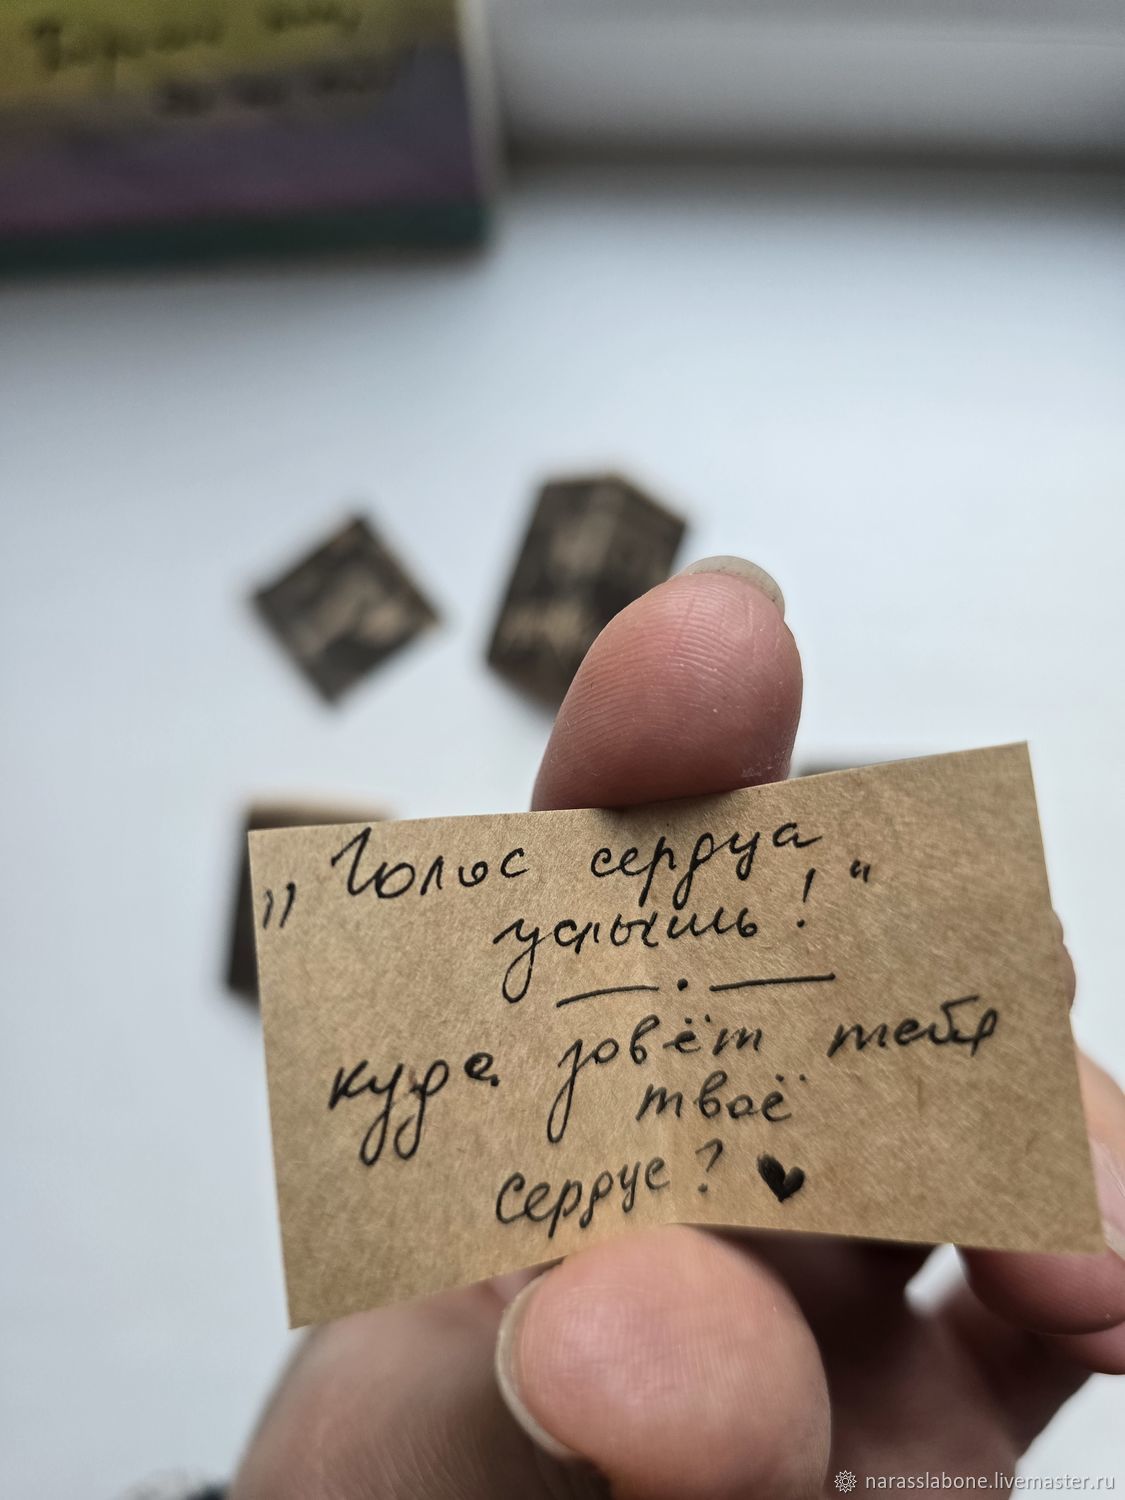 „Голос сердца
услышь!“
куда зовёт тебя
твоё
сердце? ♥
narasslabone.livemaster.ru